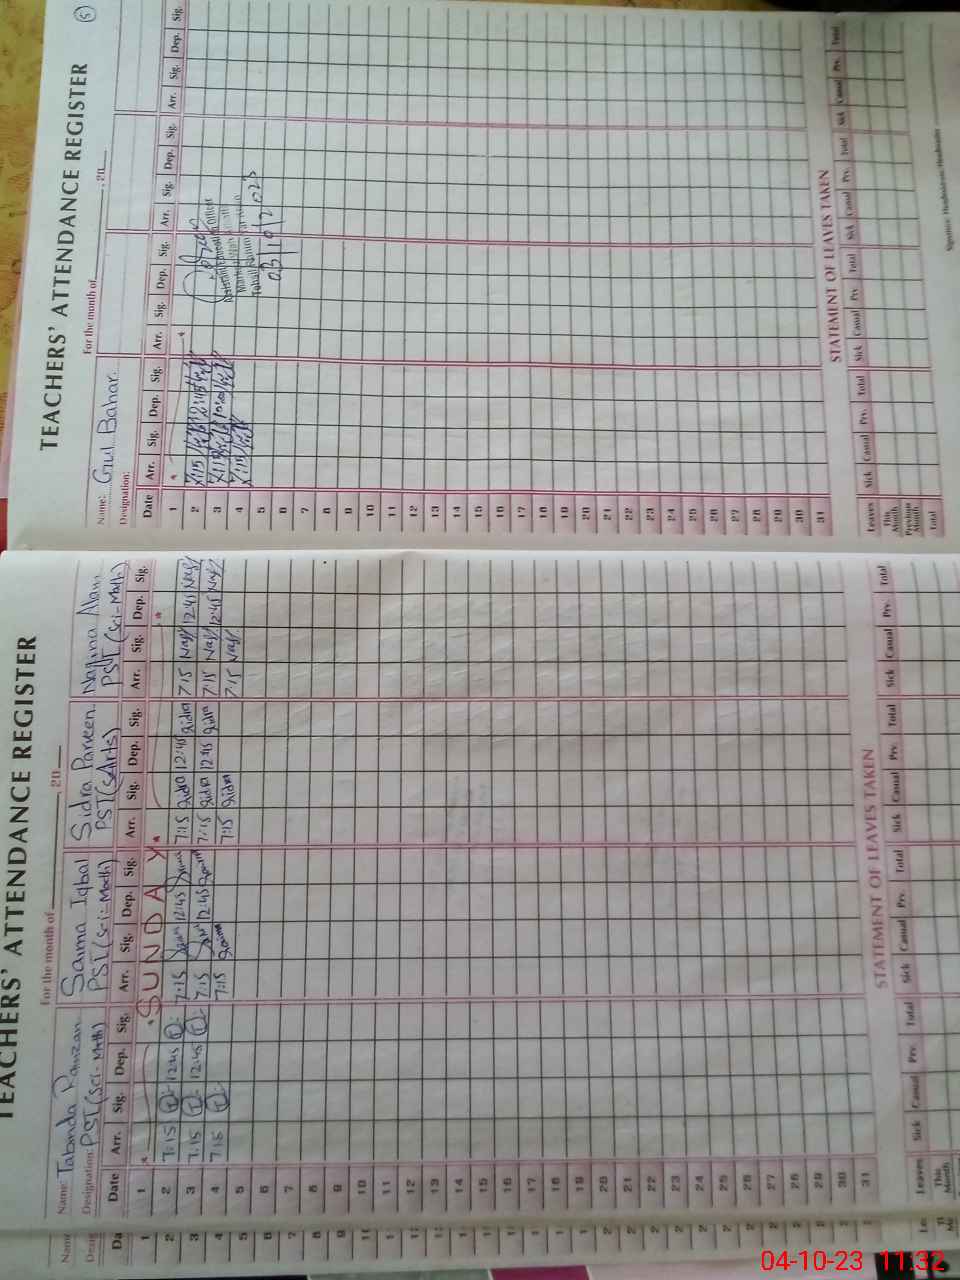 TEACHERS' ATTENDANCE REGISTER
For the month of , 20
Name: Tabinda Ramzan Saima Iqbal Sidra Parveen Najma Alam
Designation: PST (Sci-Math) PST (Sci-Math) PST (Sc Arts) PST (Sci-Math)
Date Arr. Sig. Dep. Sig. Arr. Sig. Dep. Sig. Arr. Sig. Dep. Sig. Arr. Sig. Dep. Sig.
1 SUNDAY
2 7:15 T 12:45 T 7:15 12:45 7:15 Sidra 12:45 Sidra 7:15 Naj 12:45 Naj
3 7:15 T 12:45 T 7:15 12:45 7:15 Sidra 12:45 Sidra 7:15 Naj 12:45 Naj
4 7:15 T 7:15 Saima 7:15 Sidra 7:15 Naj
5
6
7
8
9
10
11
12
13
14
15
16
17
18
19
20
21
22
23
24
25
26
27
28
29
30
31
STATEMENT OF LEAVES TAKEN
Leaves Sick Casual Prv. Total Sick Casual Prv. Total Sick Casual Prv. Total Sick Casual Prv. Total
This Month
TEACHERS' ATTENDANCE REGISTER
5
For the month of , 20
Name: Gul Bahar
Designation:
Date Arr. Sig. Dep. Sig. Arr. Sig. Dep. Sig. Arr. Sig. Dep. Sig. Arr. Sig. Dep. Sig.
1
2 7:15 12:45
3 7:15
4 7:15
5
6
7
8
9
10
11
12
13
14
15
16
17
18
19
20
21
22
23
24
25
26
27
28
29
30
31
Assistant Education Officer
Markaz
Tehsil
03/10/2023
STATEMENT OF LEAVES TAKEN
Leaves Sick Casual Prv. Total Sick Casual Prv. Total Sick Casual Prv. Total Sick Casual Prv. Total
This Month
Previous Month
Total
Signature Headmaster/Headmistress
04-10-23 11:32